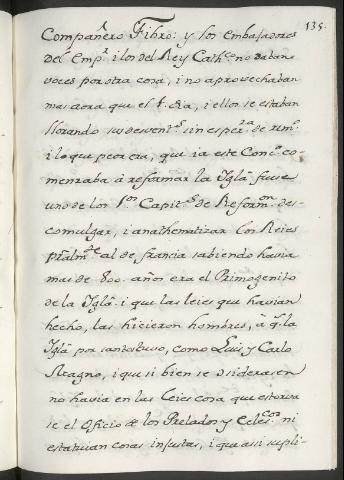 135.
Compañero Fibro: y los embajadores
del Emp.r i los del Rey Cath.co no daban
voces por otra cosa, i no aprovechaban
mas aora que el p.r dia, i ellos se estaban
llorando sus desvent.s sin esper.za de rem.o
i lo que peor era, que ia este Conc.o co-
menzaba à reformar la Igl.a fuese
uno de los p.ros Capit.s de Reform.on des-
comulgar, i anathematizar los Reies
pr̃alm.te al de francia sabiendo havia
mas de 800. años era el Primogenito
de la Igl.a i que las leies que havian
hecho, las hicieron hombres, à q.n la
Igl.a por santos tuvo, como Luis y Carlo
Magno, i que si bien se considerasen
no havia en las Leies cosa que estorva
se el Oficio de los Prelados y Eccles.cos ni
estatuian cosas injustas, i que assi supli-